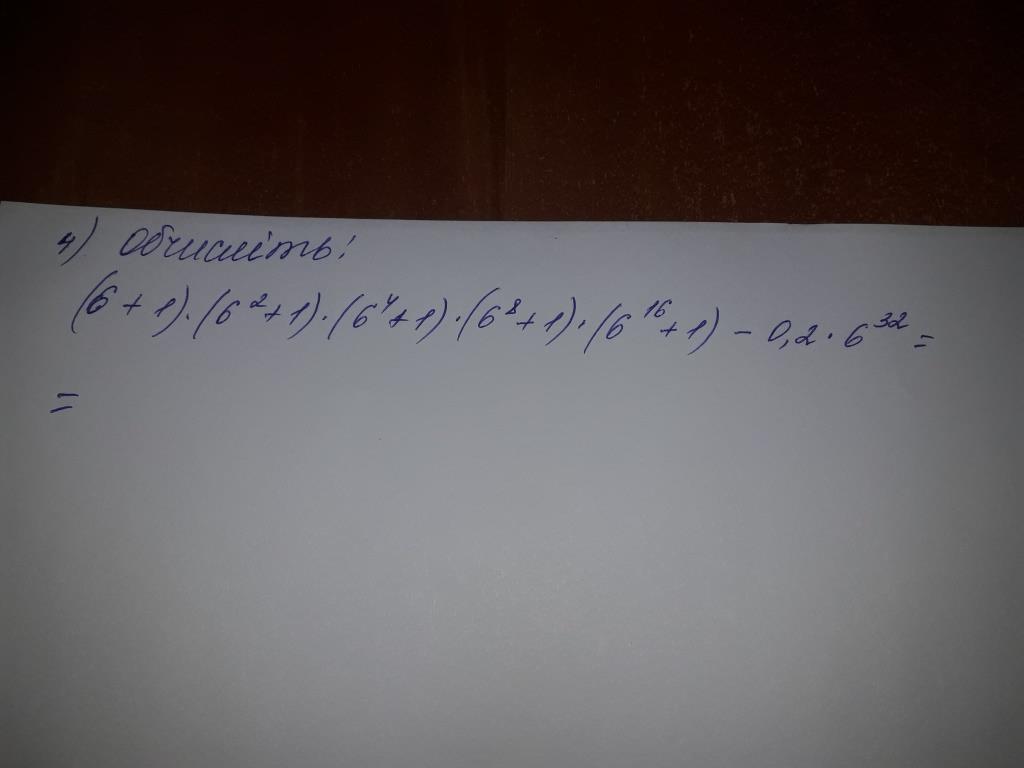 4) Обчисліть:
(6 + 1)·(6² + 1)·(6⁴ + 1)·(6⁸ + 1)·(6¹⁶ + 1) – 0,2 · 6³² =
=